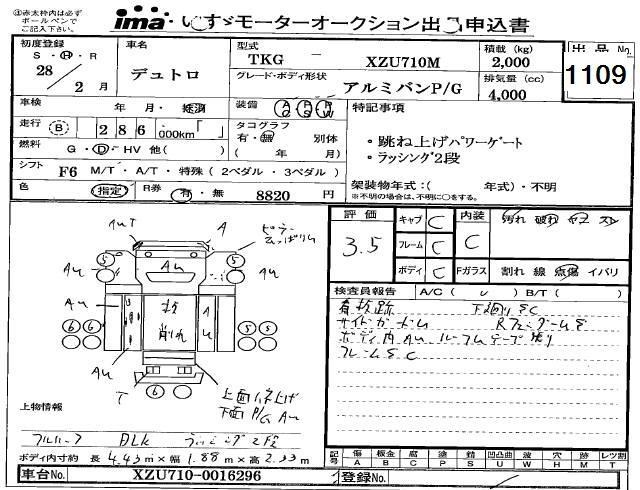 ④赤太枠内は必ず
ボールペンで
ご記入下さい。
ima・いすゞモーターオークション出品申込書
初度登録 S・H・R 28年 2月
車名 デュトロ
型式 TKG － XZU710M
積載(kg) 2,000
出品No. 1109
グレード・ボディ形状 アルミバンP/G
排気量(cc) 4,000
車検 年 月・抹消
装備 AC PS PW
特記事項
走行 B 286,000km「 」
タコグラフ 有・無 別体
( 年 月)
・跳ね上げパワーゲート
・ラッシング2段
燃料 G・D・HV 他( )
シフト F6 M/T・A/T・特殊(2ペダル・3ペダル)
色 指定 R券 有・無 8820 円
架装物年式:( 年式)・不明
※不明の場合は、不明に〇をする。
評価 3.5
キャブ C
フレーム C
ボディ C
内装 C
汚れ 破れ コゲ スレ
Fガラス 割れ 線 点傷 イバリ
検査員報告 A/C( レ ) B/T( )
有板跡
フレームSC
AuT
A
Au
5 5
Au Au
Au
6 6 5 5
削れ
Au
T 6 5
上面ハネ上げ
下面P/G Au
上物情報
フルハーフ BLK ラッシング2段
ボディ内寸約 長 4.43m×幅 1.88m×高 2.33m
記号 傷A 板金B 腐C 塗P 錆S 凹凸曲U 波W 穴H 跡M レツ割T
車台No. XZU710-0016296
登録No.